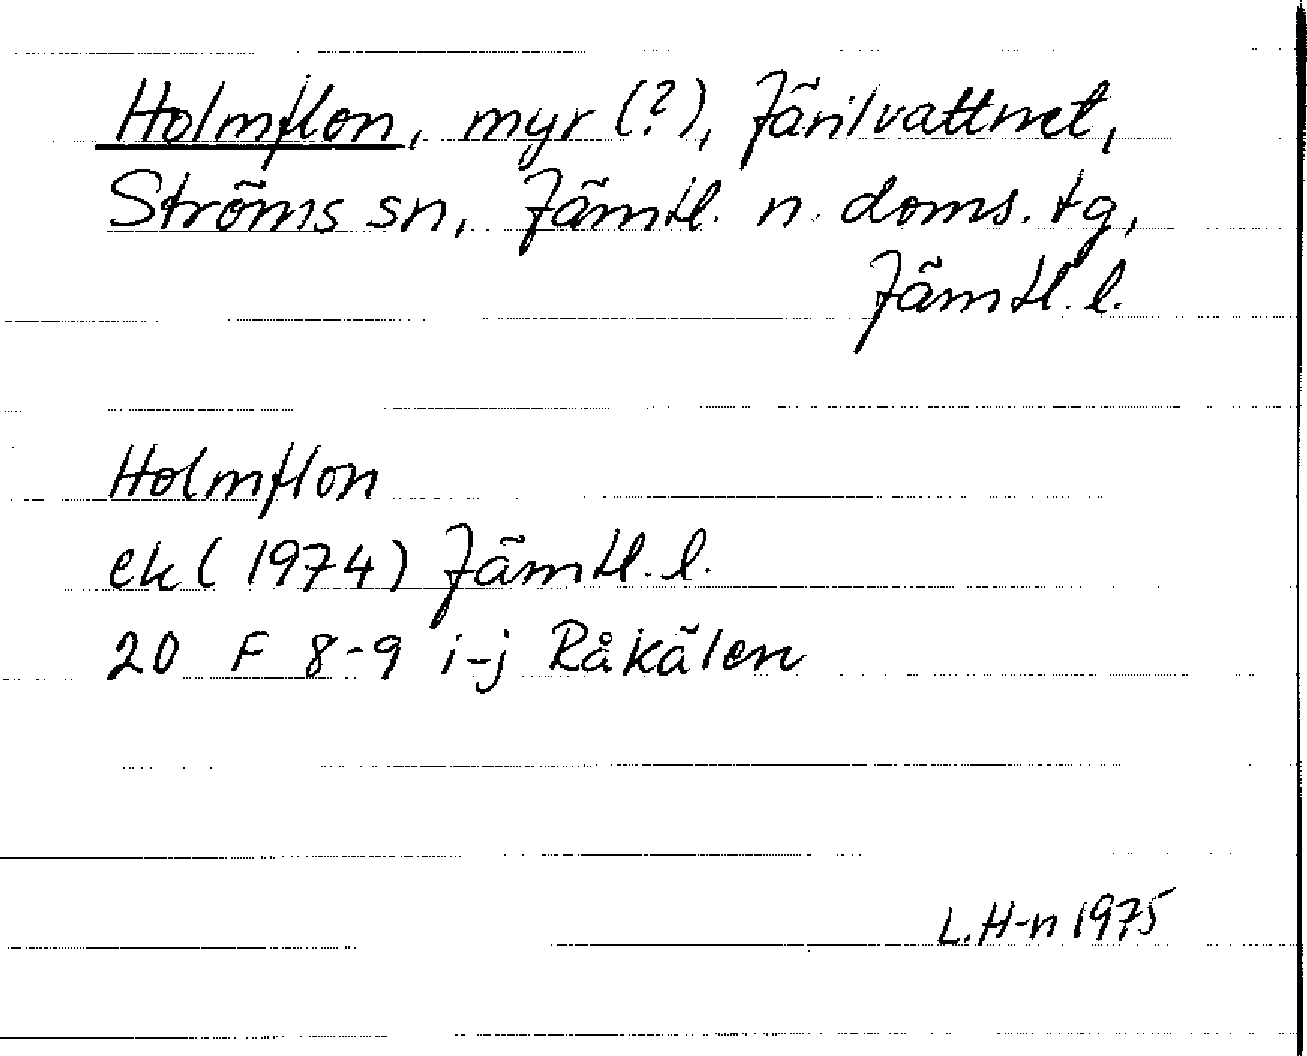 Holmflon, myr (?), Järilvattnet,
Ströms sn, Jämtl. n. doms. tg,
Jämtl. l.
Holmflon
ek (1974) Jämtl. l.
20 F 8-9 i-j Råkälen
L. H-n 1975